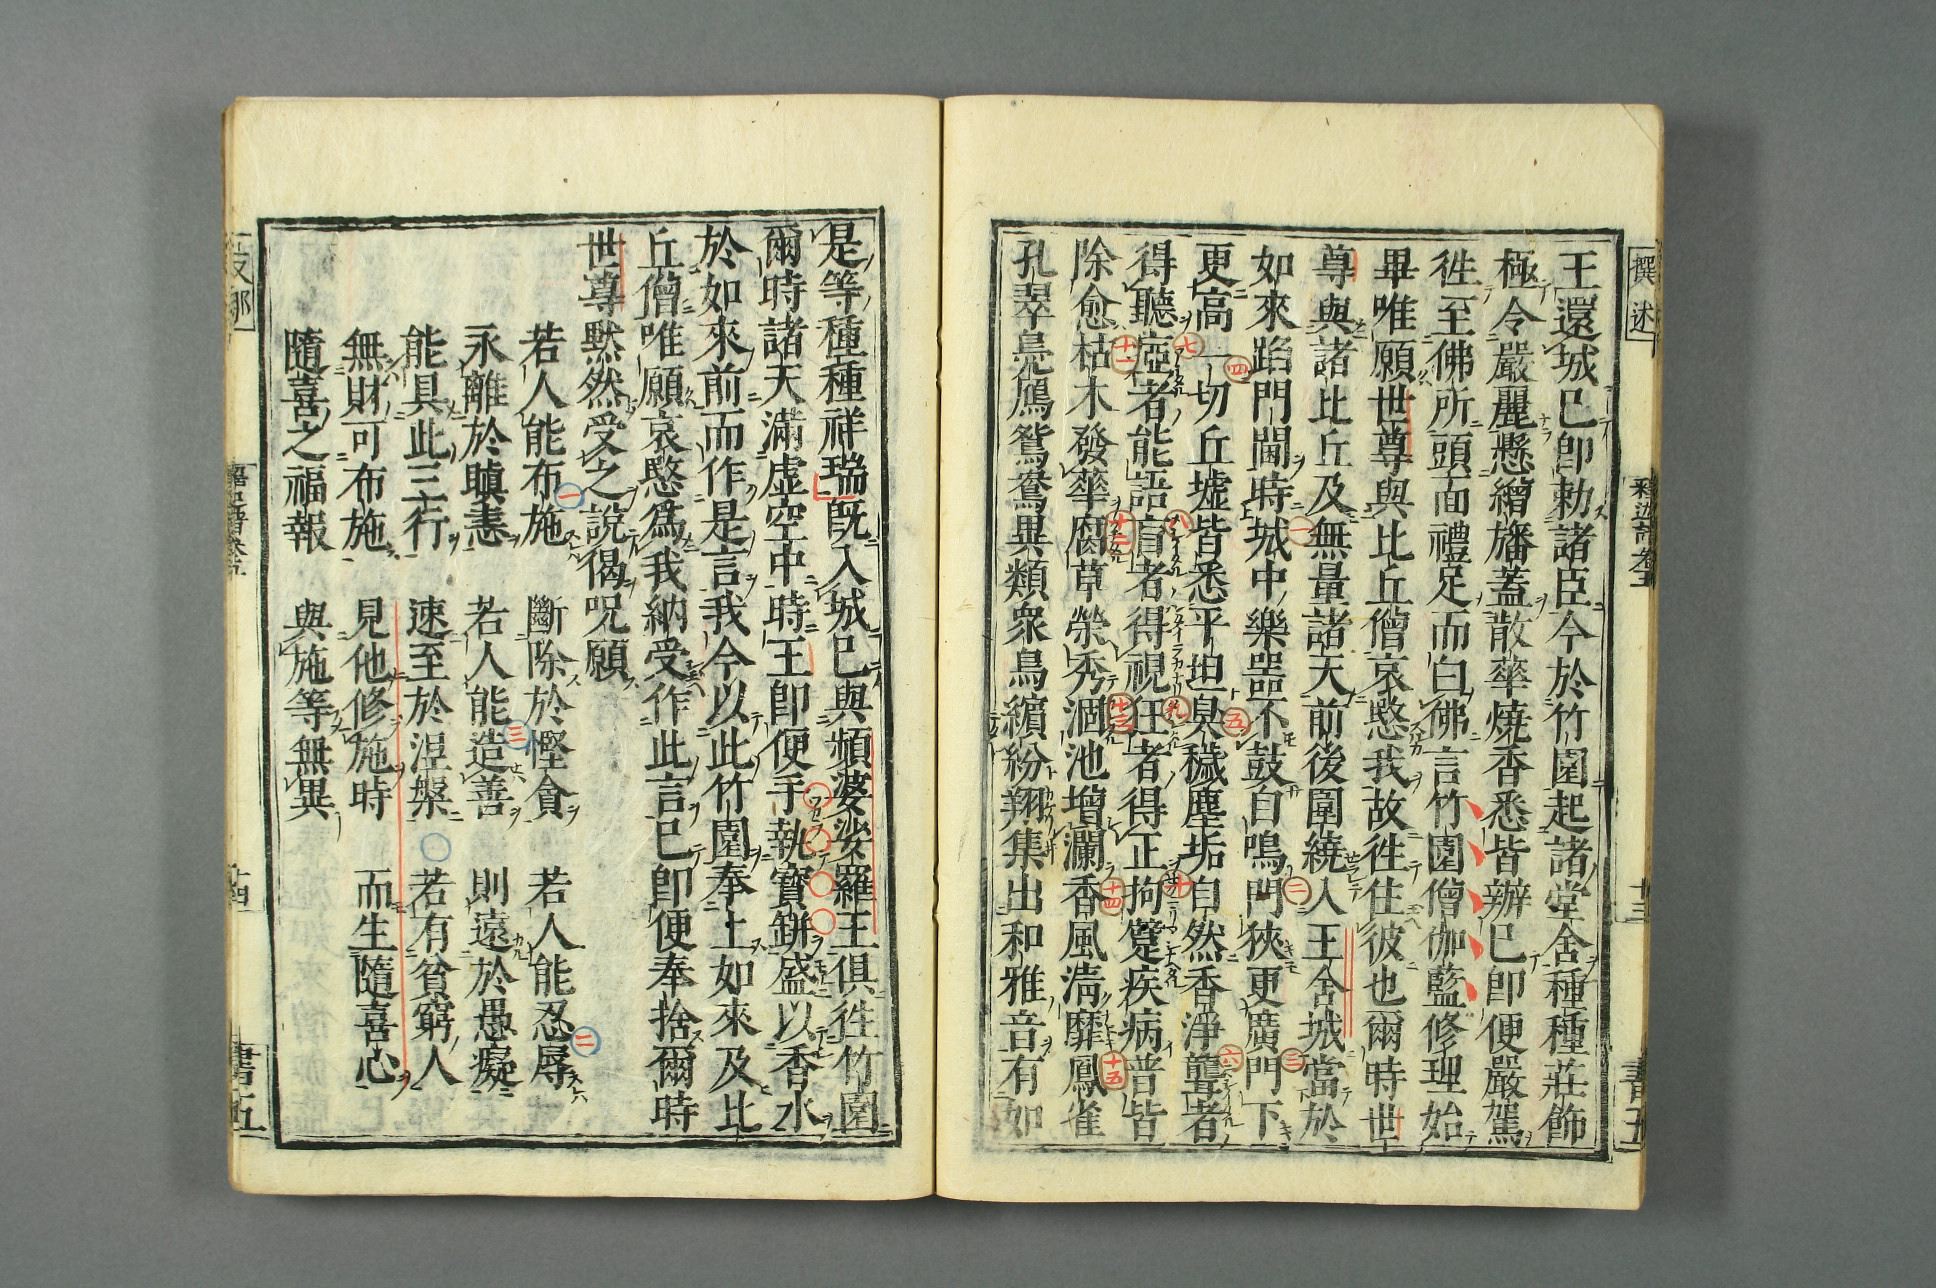 王還城已卽勅諸臣今於竹園起諸堂舍種種莊飾
極令嚴麗懸繒旛蓋散華燒香悉皆辦已卽便嚴駕
徃至佛所頭面禮足而白佛言竹園僧伽藍修理始
畢唯願世尊與比丘僧哀愍我故徃住彼也爾時世
尊與諸比丘及無量諸天前後圍繞入王舍城當於
如來蹈門閫時城中樂噐不鼓自鳴門狹更廣門下
更高一切丘墟皆悉平坦臭穢塵垢自然香淨聾者
得聽瘂者能語盲者得視狂者得正拘躄疾病普皆
除愈枯木發華腐草榮秀涸池增瀾香風淸靡鳳雀
孔翠鳧鴈鴛鴦異類衆鳥繽紛翔集出和雅音有如
是等種種祥瑞旣入城已與頻婆娑羅王俱徃竹園
爾時諸天滿虛空中時王卽便手執寶缾盛以香水
於如來前而作是言我今以此竹園奉上如來及比
丘僧唯願哀愍爲我納受作此言已卽便奉捨爾時
世尊默然受之說偈呪願
若人能布施 斷除於慳貪 若人能忍辱
永離於瞋恚 若人能造善 則遠於愚癡
能具此三行 速至於涅槃 若有貧窮人
無財可布施 見他修施時 而生隨喜心
隨喜之福報 與施等無異
撰述
釋迦譜卷五
十三
書五
支那
十四
書五